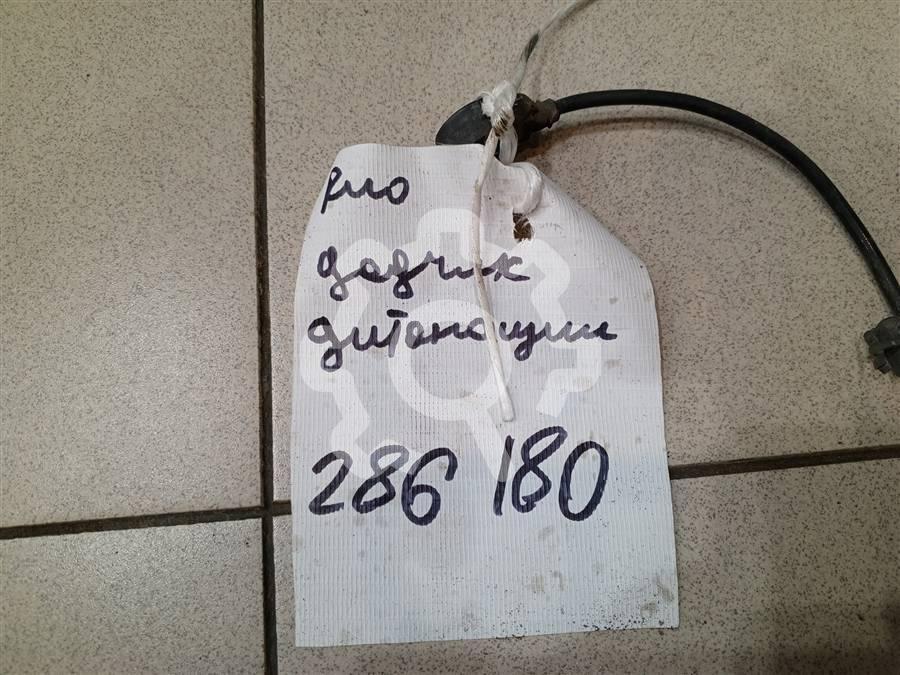 Рио
дадчик
дитонации
286 180